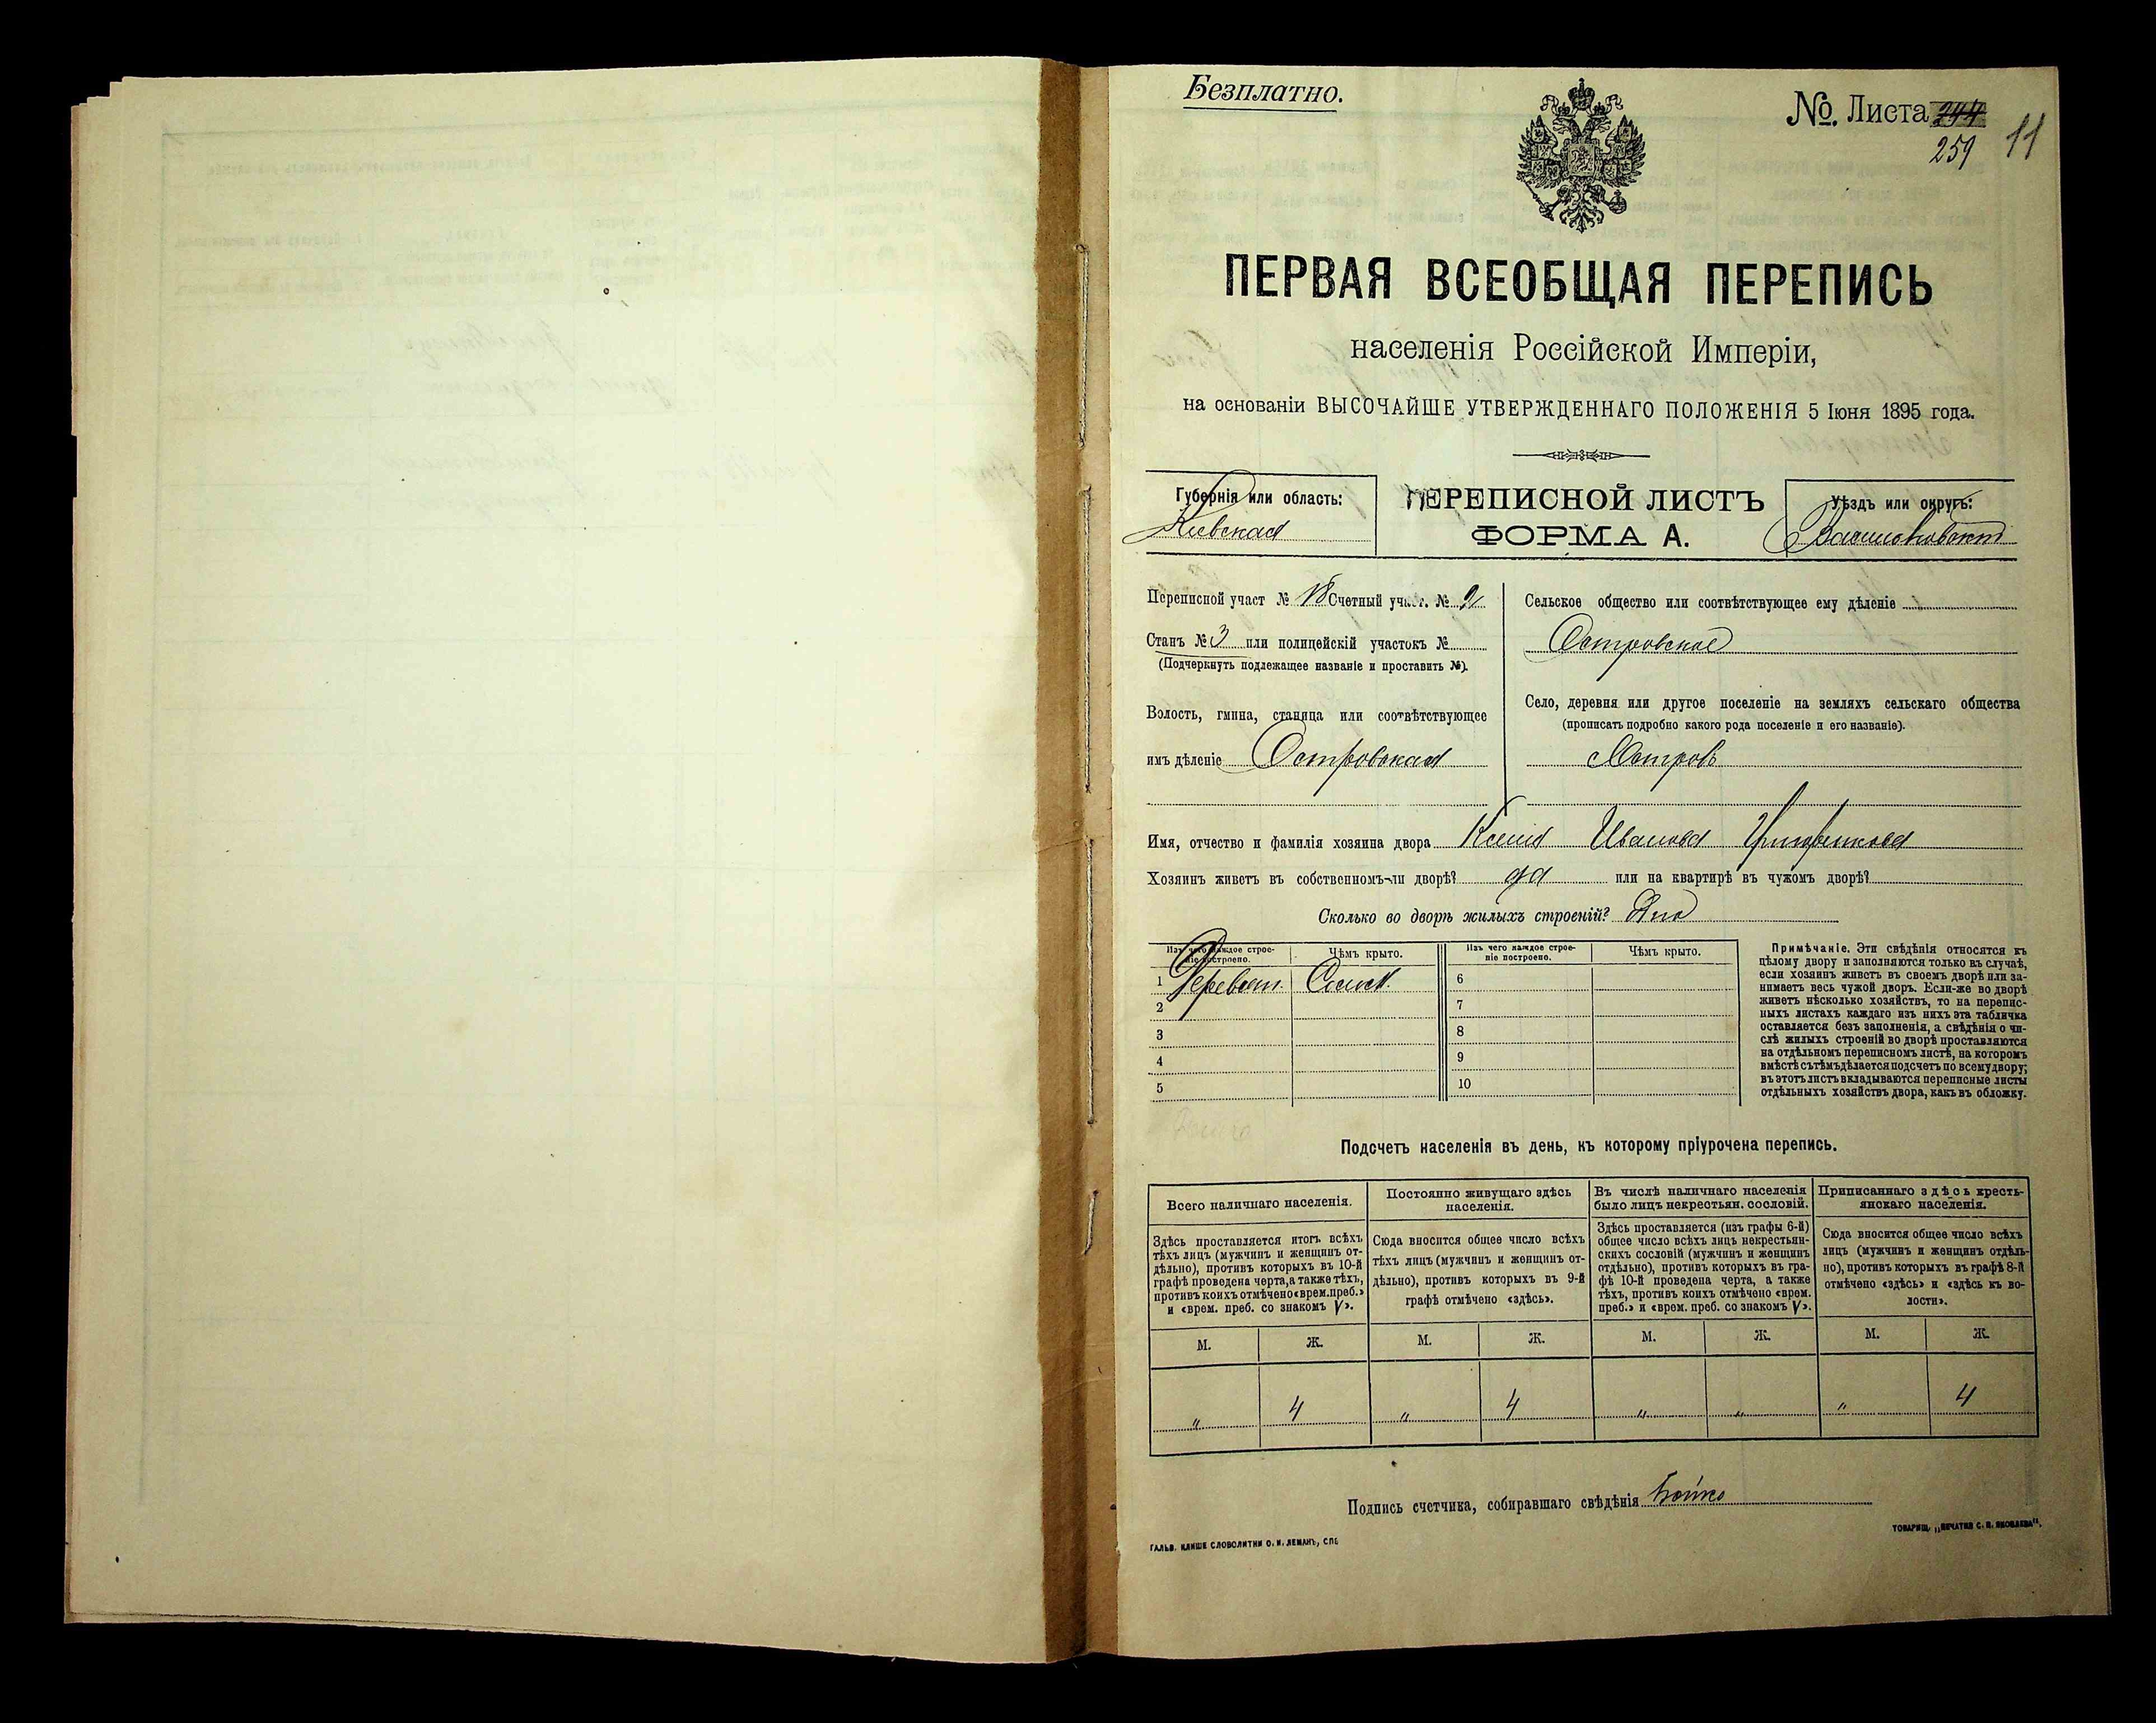 Безплатно.
№. Листа 244
259 11
ПЕРВАЯ ВСЕОБЩАЯ ПЕРЕПИСЬ
населенія Россійской Имперіи,
на основаніи ВЫСОЧАЙШЕ УТВЕРЖДЕННАГО ПОЛОЖЕНІЯ 5 Іюня 1895 года.
Губернія или область:
Кіевская
ПЕРЕПИСНОЙ ЛИСТЪ
ФОРМА А.
Уѣздъ или округъ:
Васильковскій
Переписной участ № 18 Счетный участ. № 2
Станъ № 3 или полицейскій участокъ №
(Подчеркнуть подлежащее названіе и проставить №).
Волость, гмина, станица или соотвѣтствующее
имъ дѣленіе Островская
Сельское общество или соотвѣтствующее ему дѣленіе
Островское
Село, деревня или другое поселеніе на земляхъ сельскаго общества
(прописать подробно какого рода поселеніе и его названіе).
Островъ
Имя, отчество и фамилія хозяина двора Ксенія Иванова
Хозяинъ живетъ въ собственномъ-ли дворѣ? да или на квартирѣ въ чужомъ дворѣ?
Сколько во дворѣ жилыхъ строеній?
Изъ чего каждое строе-
ніе построено.
Чѣмъ крыто.
Изъ чего каждое строе-
ніе построено.
Чѣмъ крыто.
1 Деревян. Солом. 6
2 7
3 8
4 9
5 10
Примѣчаніе. Эти свѣдѣнія относятся къ
цѣлому двору и заполняются только въ случаѣ,
если хозяинъ живетъ въ своемъ дворѣ или за-
нимаетъ весь чужой дворъ. Если-же во дворѣ
живетъ нѣсколько хозяйствъ, то на перепис-
ныхъ листахъ каждаго изъ нихъ эта табличка
оставляется безъ заполненія, а свѣдѣнія о чи-
слѣ жилыхъ строеній во дворѣ проставляются
на отдѣльномъ переписномъ листѣ, на которомъ
вмѣстѣ съ тѣмъ дѣлается подсчетъ по всему двору;
въ этотъ листъ вкладываются переписные листы
отдѣльныхъ хозяйствъ двора, какъ въ обложку.
Подсчетъ населенія въ день, къ которому пріурочена перепись.
Всего наличнаго населенія.
Здѣсь проставляется итогъ всѣхъ
тѣхъ лицъ (мужчинъ и женщинъ от-
дѣльно), противъ которыхъ въ 10-й
графѣ проведена черта, а также тѣхъ,
противъ коихъ отмѣчено «врем. преб.»
и «врем. преб. со знакомъ V».
Постоянно живущаго здѣсь
населенія.
Сюда вносится общее число всѣхъ
тѣхъ лицъ (мужчинъ и женщинъ от-
дѣльно), противъ которыхъ въ 9-й
графѣ отмѣчено «здѣсь».
Въ числѣ наличнаго населенія
было лицъ некрестьян. сословій.
Здѣсь проставляется (изъ графы 6-й)
общее число всѣхъ лицъ некрестьян-
скихъ сословій (мужчинъ и женщинъ
отдѣльно), противъ которыхъ въ гра-
фѣ 10-й проведена черта, а также
тѣхъ, противъ коихъ отмѣчено «врем.
преб.» и «врем. преб. со знакомъ V».
Приписаннаго здѣсь кресть-
янскаго населенія.
Сюда вносится общее число всѣхъ
лицъ (мужчинъ и женщинъ отдѣль-
но), противъ которыхъ въ графѣ 8-й
отмѣчено «здѣсь» и «здѣсь къ во-
лости».
М. Ж. М. Ж. М. Ж. М. Ж.
„ 4 „ 4 „ „ „ 4
Подпись счетчика, собиравшаго свѣдѣнія Бойко
ГАЛЬВ. КЛИШЕ СЛОВОЛИТНИ О. И. ЛЕМАНЪ, СПБ
ТОВАРИЩ. „ПЕЧАТНЯ С. П. ЯКОВЛЕВА“.